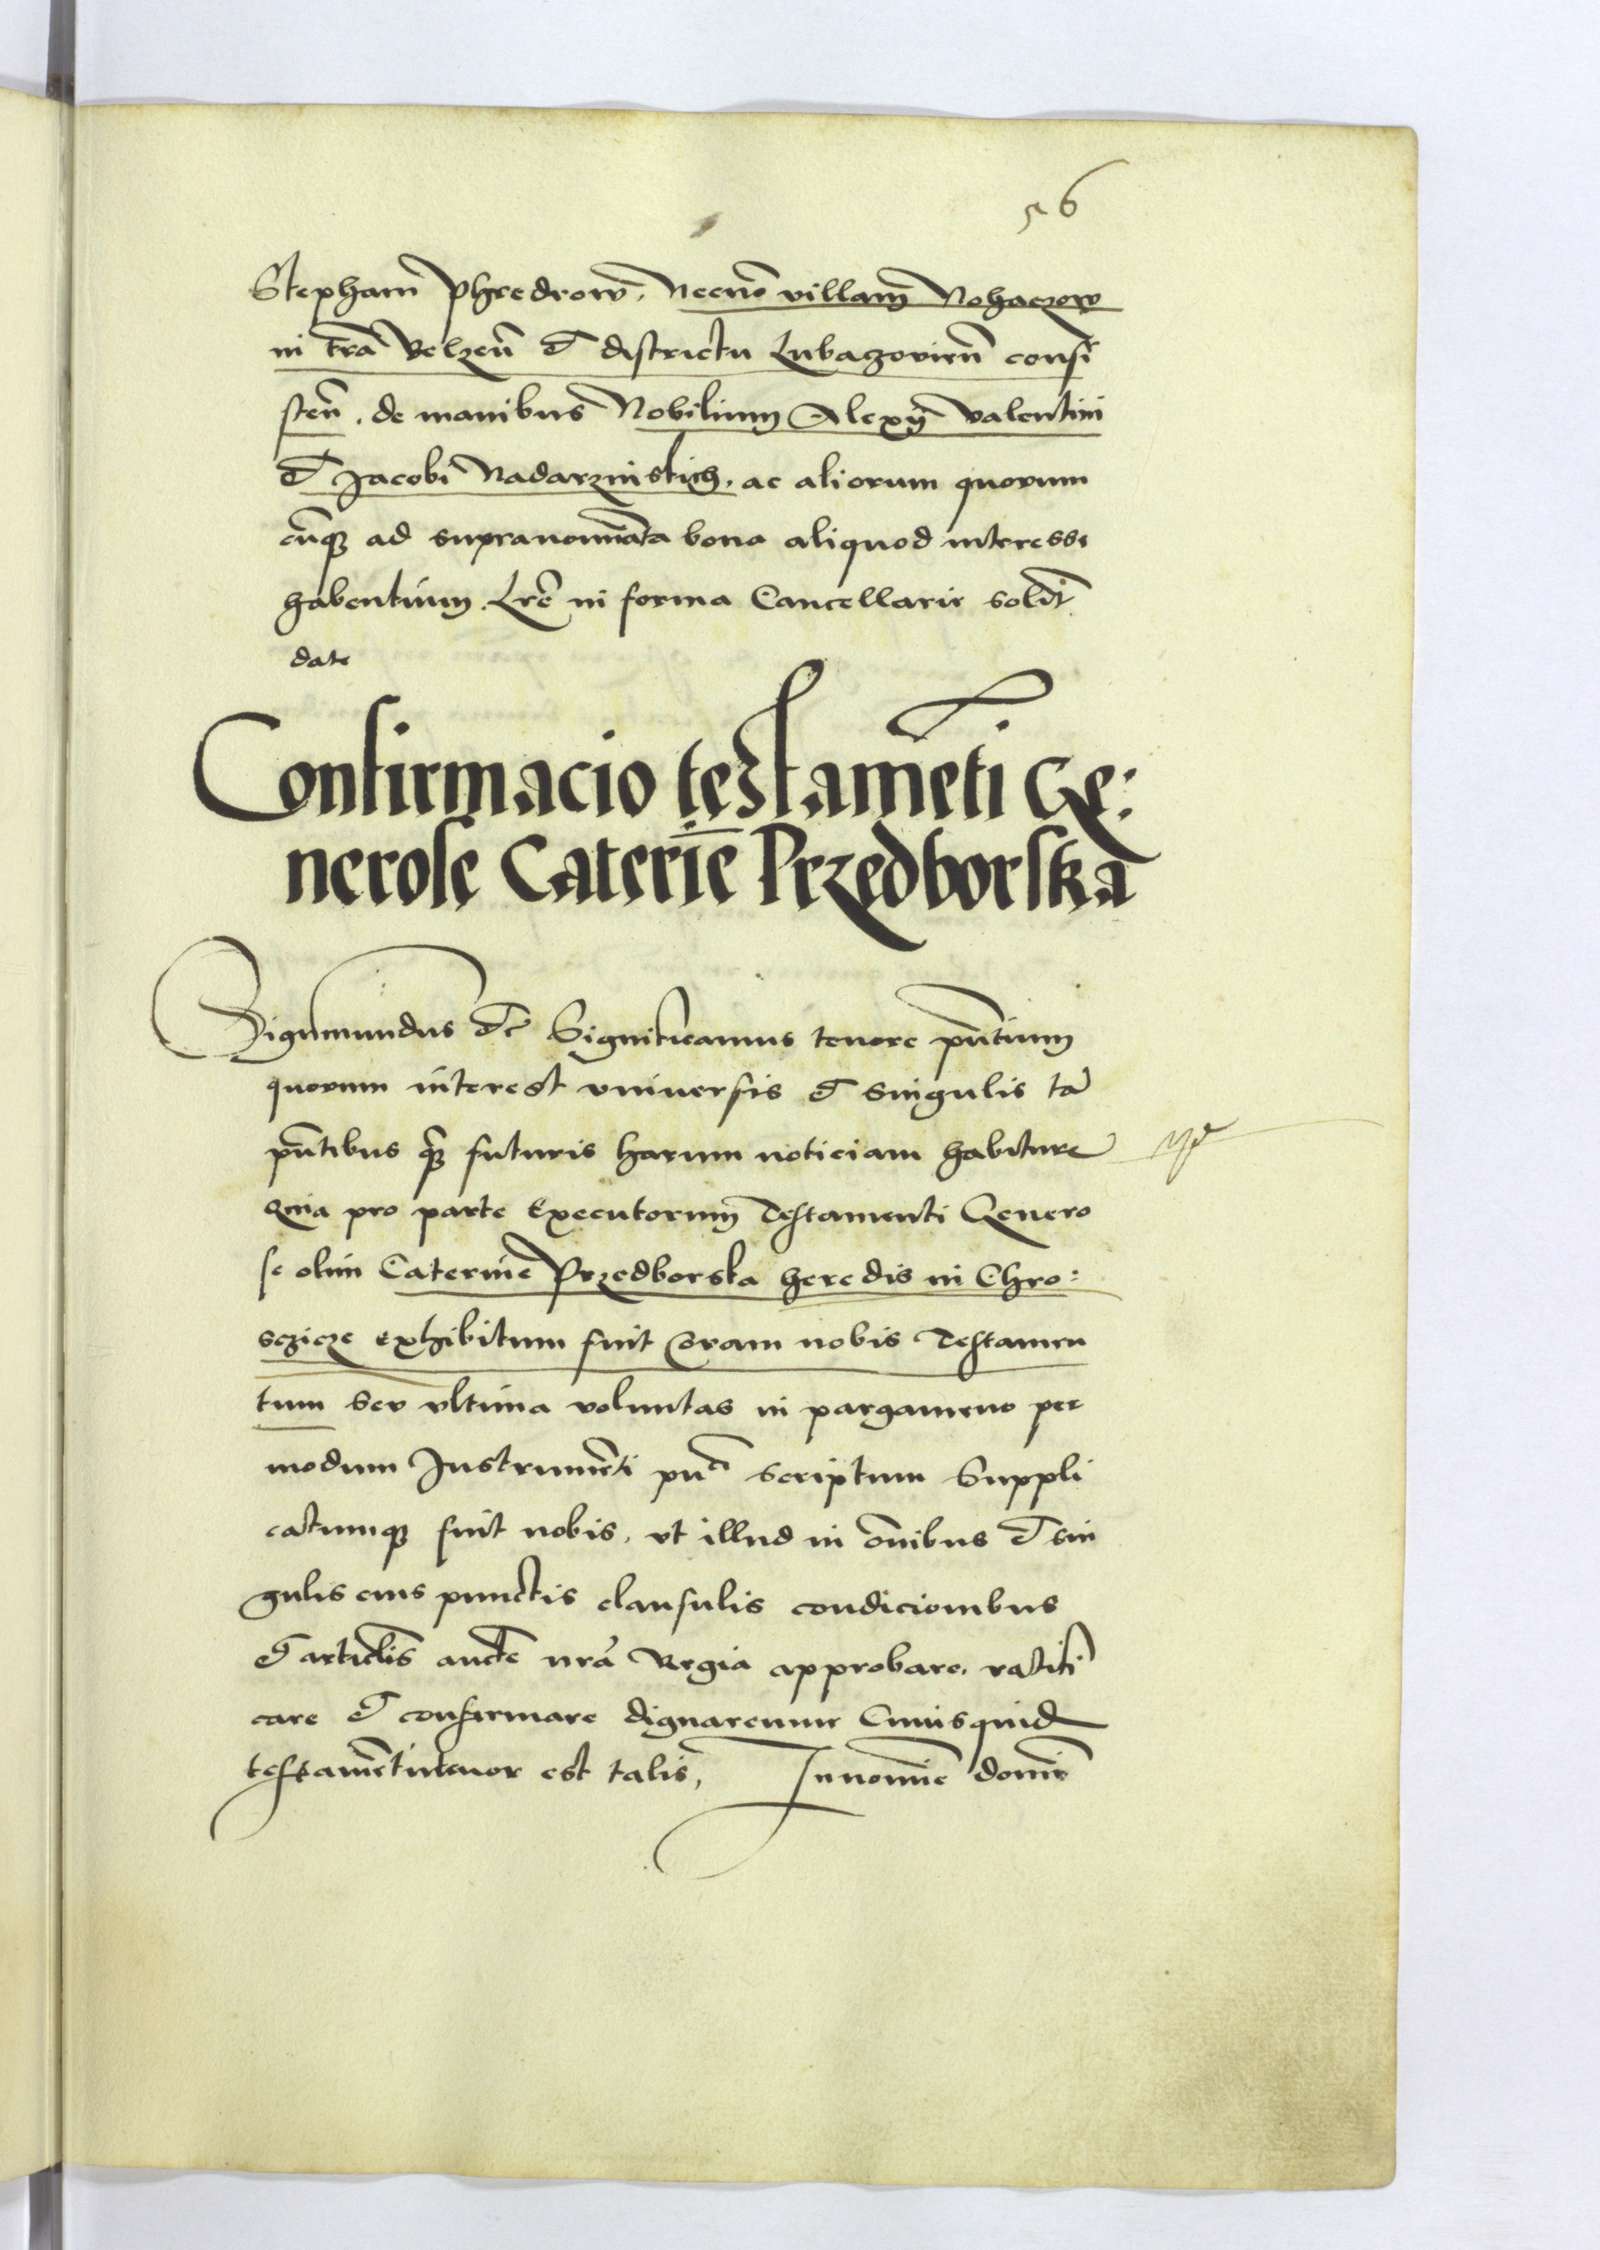 56
Stephani Phredrow. Necnō villam Nohaczow
in trā Belzeñ et districtu Lubaczovieñ consi
steñ. de manibus Nobilium Alexÿ Valentini
et Jacobi Nadarzinskich. ac aliorum quorum
cūq3 ad supranominata bona aliquod interesse
habentium. Lrē in forma Cancellarie solit
date
Confirmacio testamēti Ge:
nerose Caterine Przedborska
Sigismundus etc Significamus tenore pñtium
quorum interest universis et singulis tā
pñtibus q3 futuris harum noticiam habituris
Quia pro parte Executorum Testamenti Genero
se olim Caterine Przedborska heredis in Chro:
sczicze exhibitum fuit Coram nobis Testamen
tum seu ultima voluntas in pargameno per
modum Instrumēti scriptum Suppli
catumq3 fuit nobis, ut illud in oībus et sin
gulis eius punctis clausulis condicionibus
et articlis aucte nrā Regia approbare. ratifi
care et confirmare dignaremur Cuiusquid
testamēti tenor est talis, In nomine domini